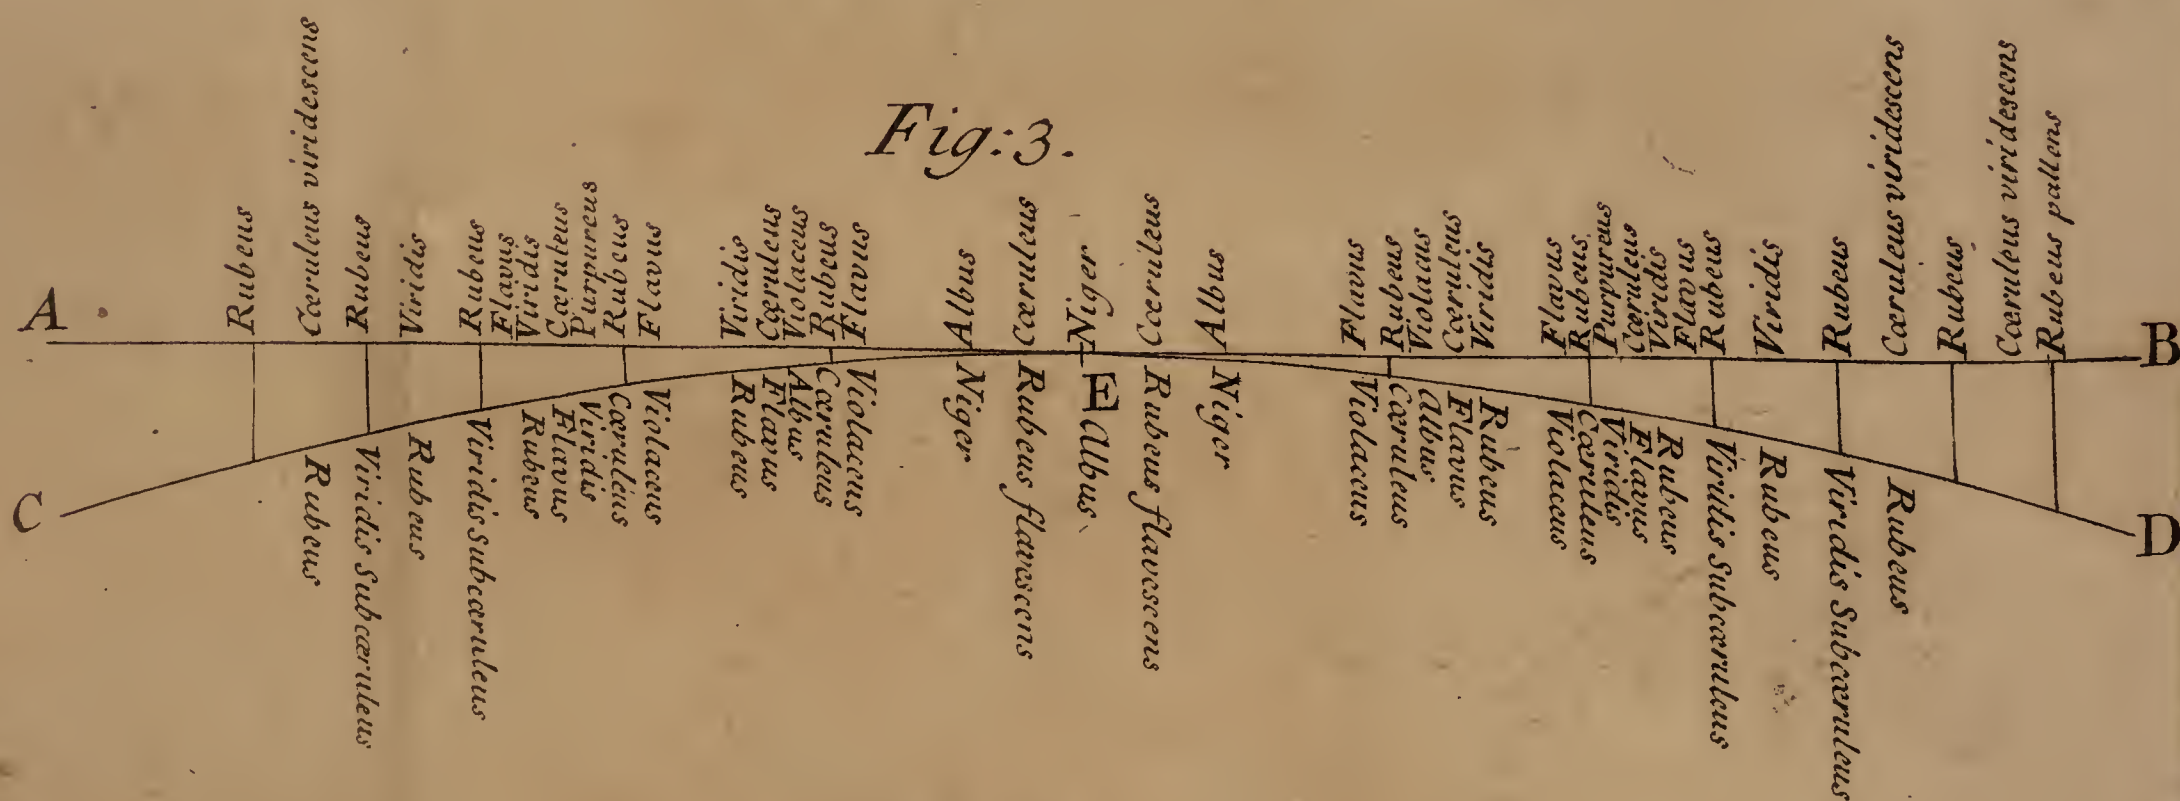 Fig:3.
A
Rubeus
Cœruleus viridescens
Rubeus
Viridis
Rubeus
Flavus
Viridis
Cœruleus
Purpureus
Rubeus
Flavus
Viridis
Cœruleus
Violaceus
Rubeus
Flavus
Albus
Cœruleus
Niger
Cœruleus
Albus
Flavus
Rubeus
Violaceus
Cœruleus
Viridis
Flavus
Rubeus
Purpureus
Cœruleus
Viridis
Flavus
Rubeus
Viridis
Rubeus
Cœruleus viridescens
Rubeus
Cœruleus viridescens
Rubeus pallens
B
C
Rubeus
Viridis Subcœruleus
Rubeus
Viridis Subcœruleus
Rubeus
Flavus
Viridis
Cœruleus
Violaceus
Rubeus
Flavus
Albus
Cœruleus
Violaceus
Niger
Rubeus flavescens
E
Albus
Rubeus flavescens
Niger
Violaceus
Cœruleus
Albus
Flavus
Rubeus
Violaceus
Cœruleus
Viridis
Flavus
Rubeus
Viridis Subcœruleus
Rubeus
Viridis Subcœruleus
Rubeus
D